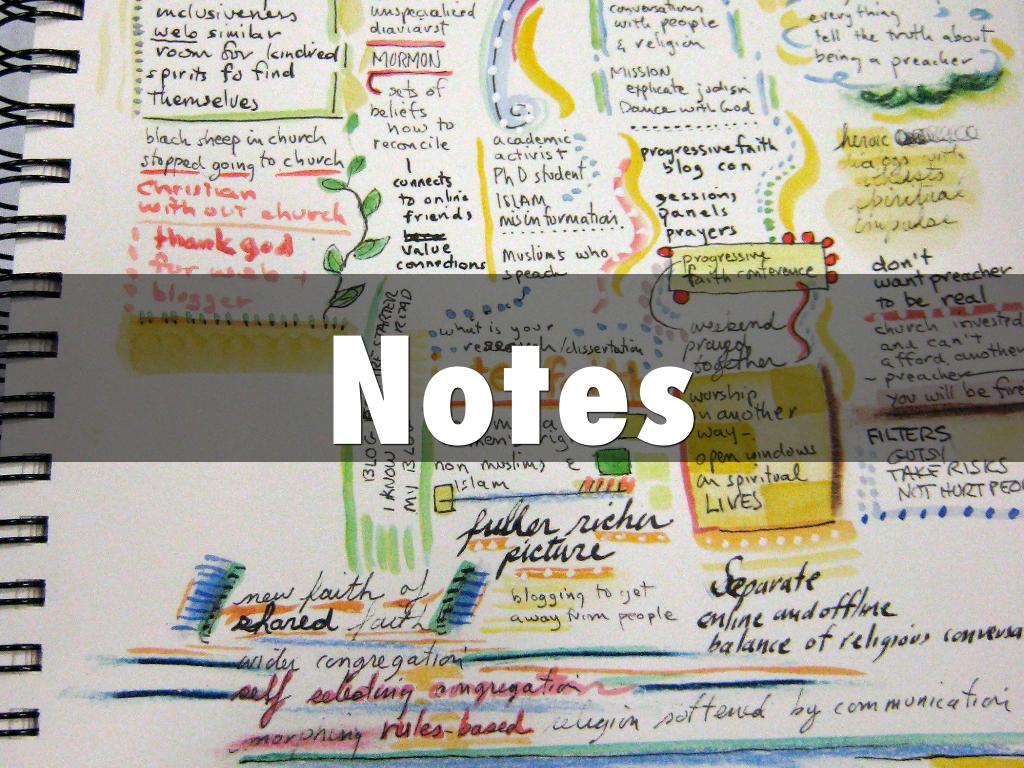 inclusiveness
web similar
room for kindred
spirits to find
Themselves
black sheep in church
stopped going to church
Christian
with out church
thank god
for web,
blogger
unspecialized
diaviarist
MORMON
sets of
beliefs
how to
reconcile
I
connects
to online
friends
value
connections
I KNOW
MY BLOG
conversations
with people
& religion
MISSION
explicate judism
Dance with God
academic
activist
PhD student
ISLAM
misinformation
Muslims who
speach
what is your
research/dissertation
non muslims
Islam
fuller richer
picture
blogging to get
away from people
progressive faith
blog con
sessions
panels
prayers
progressive
faith conference
weekend
prayed
together
worship
in another
way-
open windows
on spiritual
LIVES
everything
tell the truth about
being a preacher
heroic
spiritual
impulse
don't
want preacher
to be real
church invested
and can't
afford another
preacher
you will be fire
FILTERS
GUTSY
TAKE RISKS
NOT HURT PEOP
Notes
new faith of
shared faith
wider congregation
self selecting congregation
morphing rules-based religion softened by communication
Separate
online and offline
balance of religious conversa